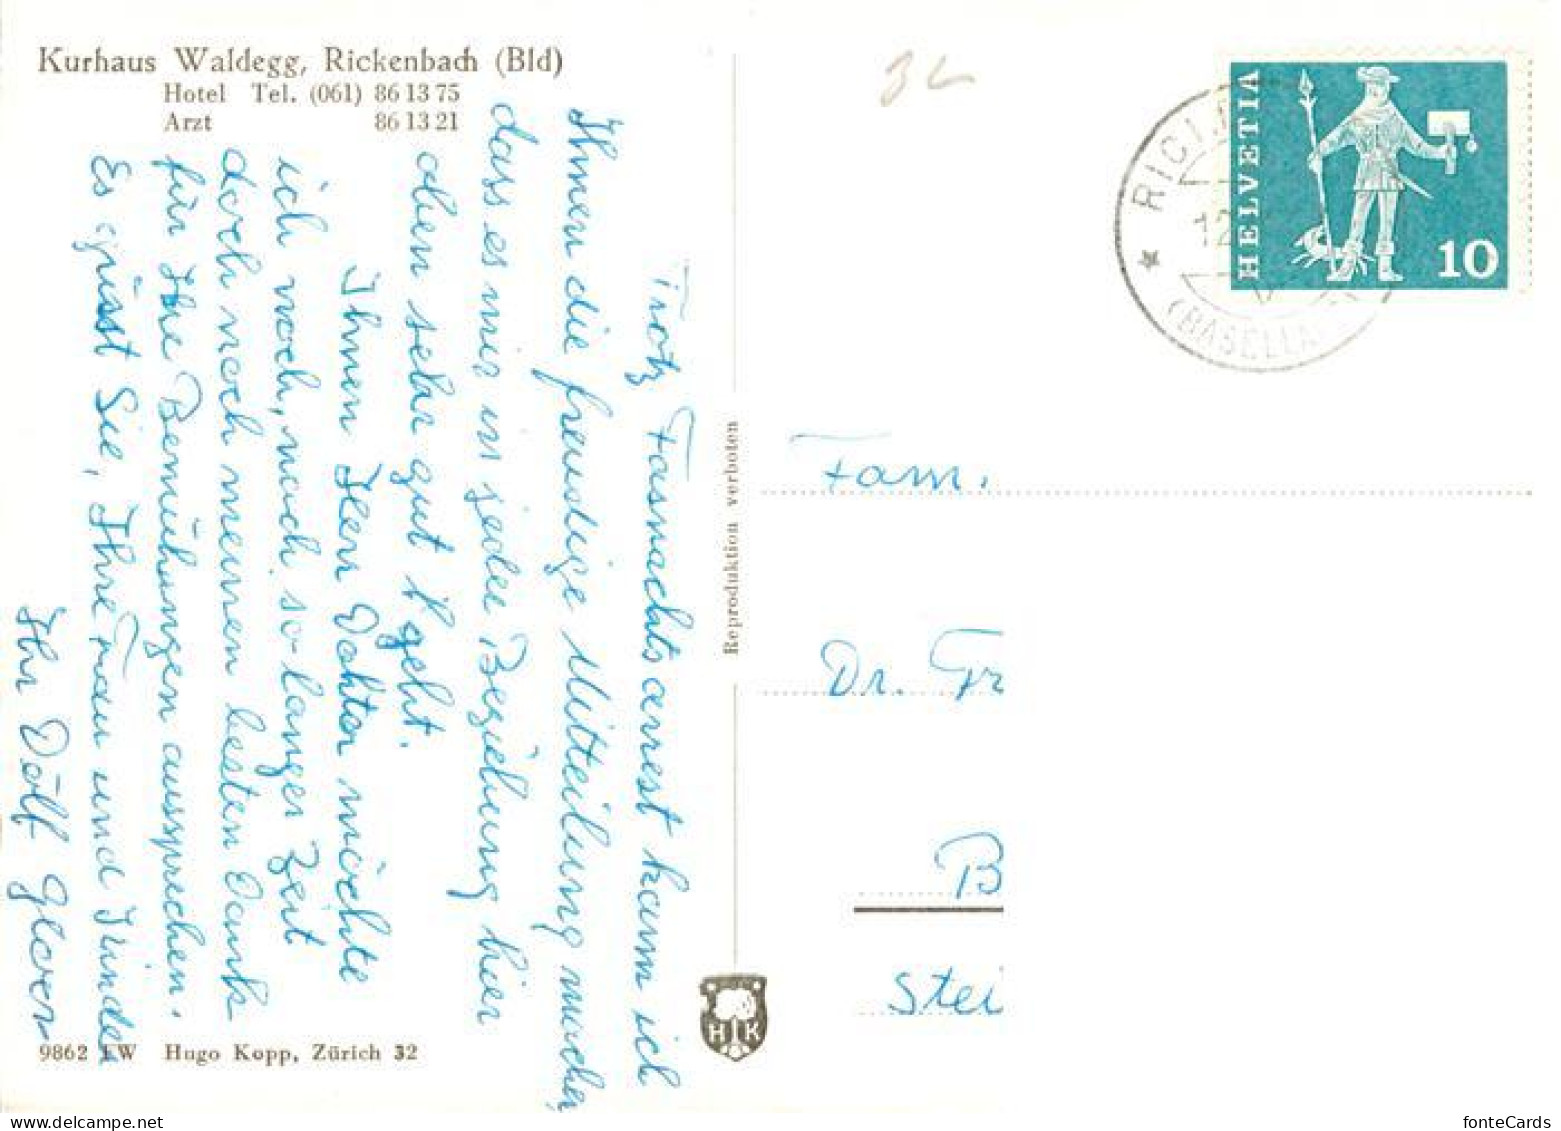 Kurhaus Waldegg, Rickenbach (Bld)
Hotel Tel. (061) 86 13 75
Arzt 86 13 21
Trotz Fasnachtsarrest kann ich
Ihnen die freudige Mitteilung machen,
dass es mir in jeder Beziehung hier
oben sehr gut geht.
Ihnen Herr Doktor möchte
ich noch, nach so langer Zeit
doch noch meinen besten Dank
für Ihre Bemühungen aussprechen.
Es grüsst Sie, Ihre Frau und Kinder
Ihr Dölf
9862 LW Hugo Kopp, Zürich 32
Reproduktion verboten
HK
BL
HELVETIA
10
Fam.
Dr. Fr
B
Stei
fonteCards